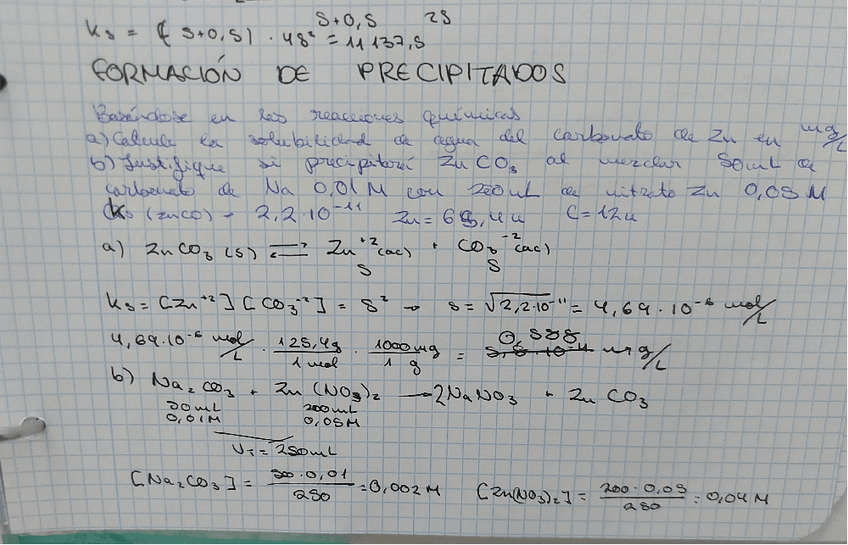 S+0,5 2S
Ks = (S+0,5) · 4S² = 11137,5
FORMACIÓN DE PRECIPITADOS
Basándose en las reacciones químicas
a) Calcule la solubilidad de agua del carbonato de Zn en mg/L
b) Justifique si precipitará ZnCO₃ al mezclar 50mL de
carbonato de Na 0,01M con 200mL de nitrato Zn 0,05M
Ks (ZnCO) = 2,2·10⁻¹¹ Zn = 65,4u C = 12u
a) ZnCO₃ (s) ⇌ Zn⁺²(ac) + CO₃⁻²(ac)
S S
Ks = [Zn⁺²][CO₃⁻²] = S² → s = √2,2·10⁻¹¹ = 4,69·10⁻⁶ mol/L
4,69·10⁻⁶ mol/L · 125,4g/1 mol · 1000mg/1 g = 0,588 mg/L
b) Na₂CO₃ + Zn(NO₃)₂ → 2NaNO₃ + ZnCO₃
50mL 200mL
0,01M 0,05M
VT = 250mL
[Na₂CO₃] = 50·0,01/250 = 0,002M [Zn(NO₃)₂] = 200·0,05/250 = 0,04M